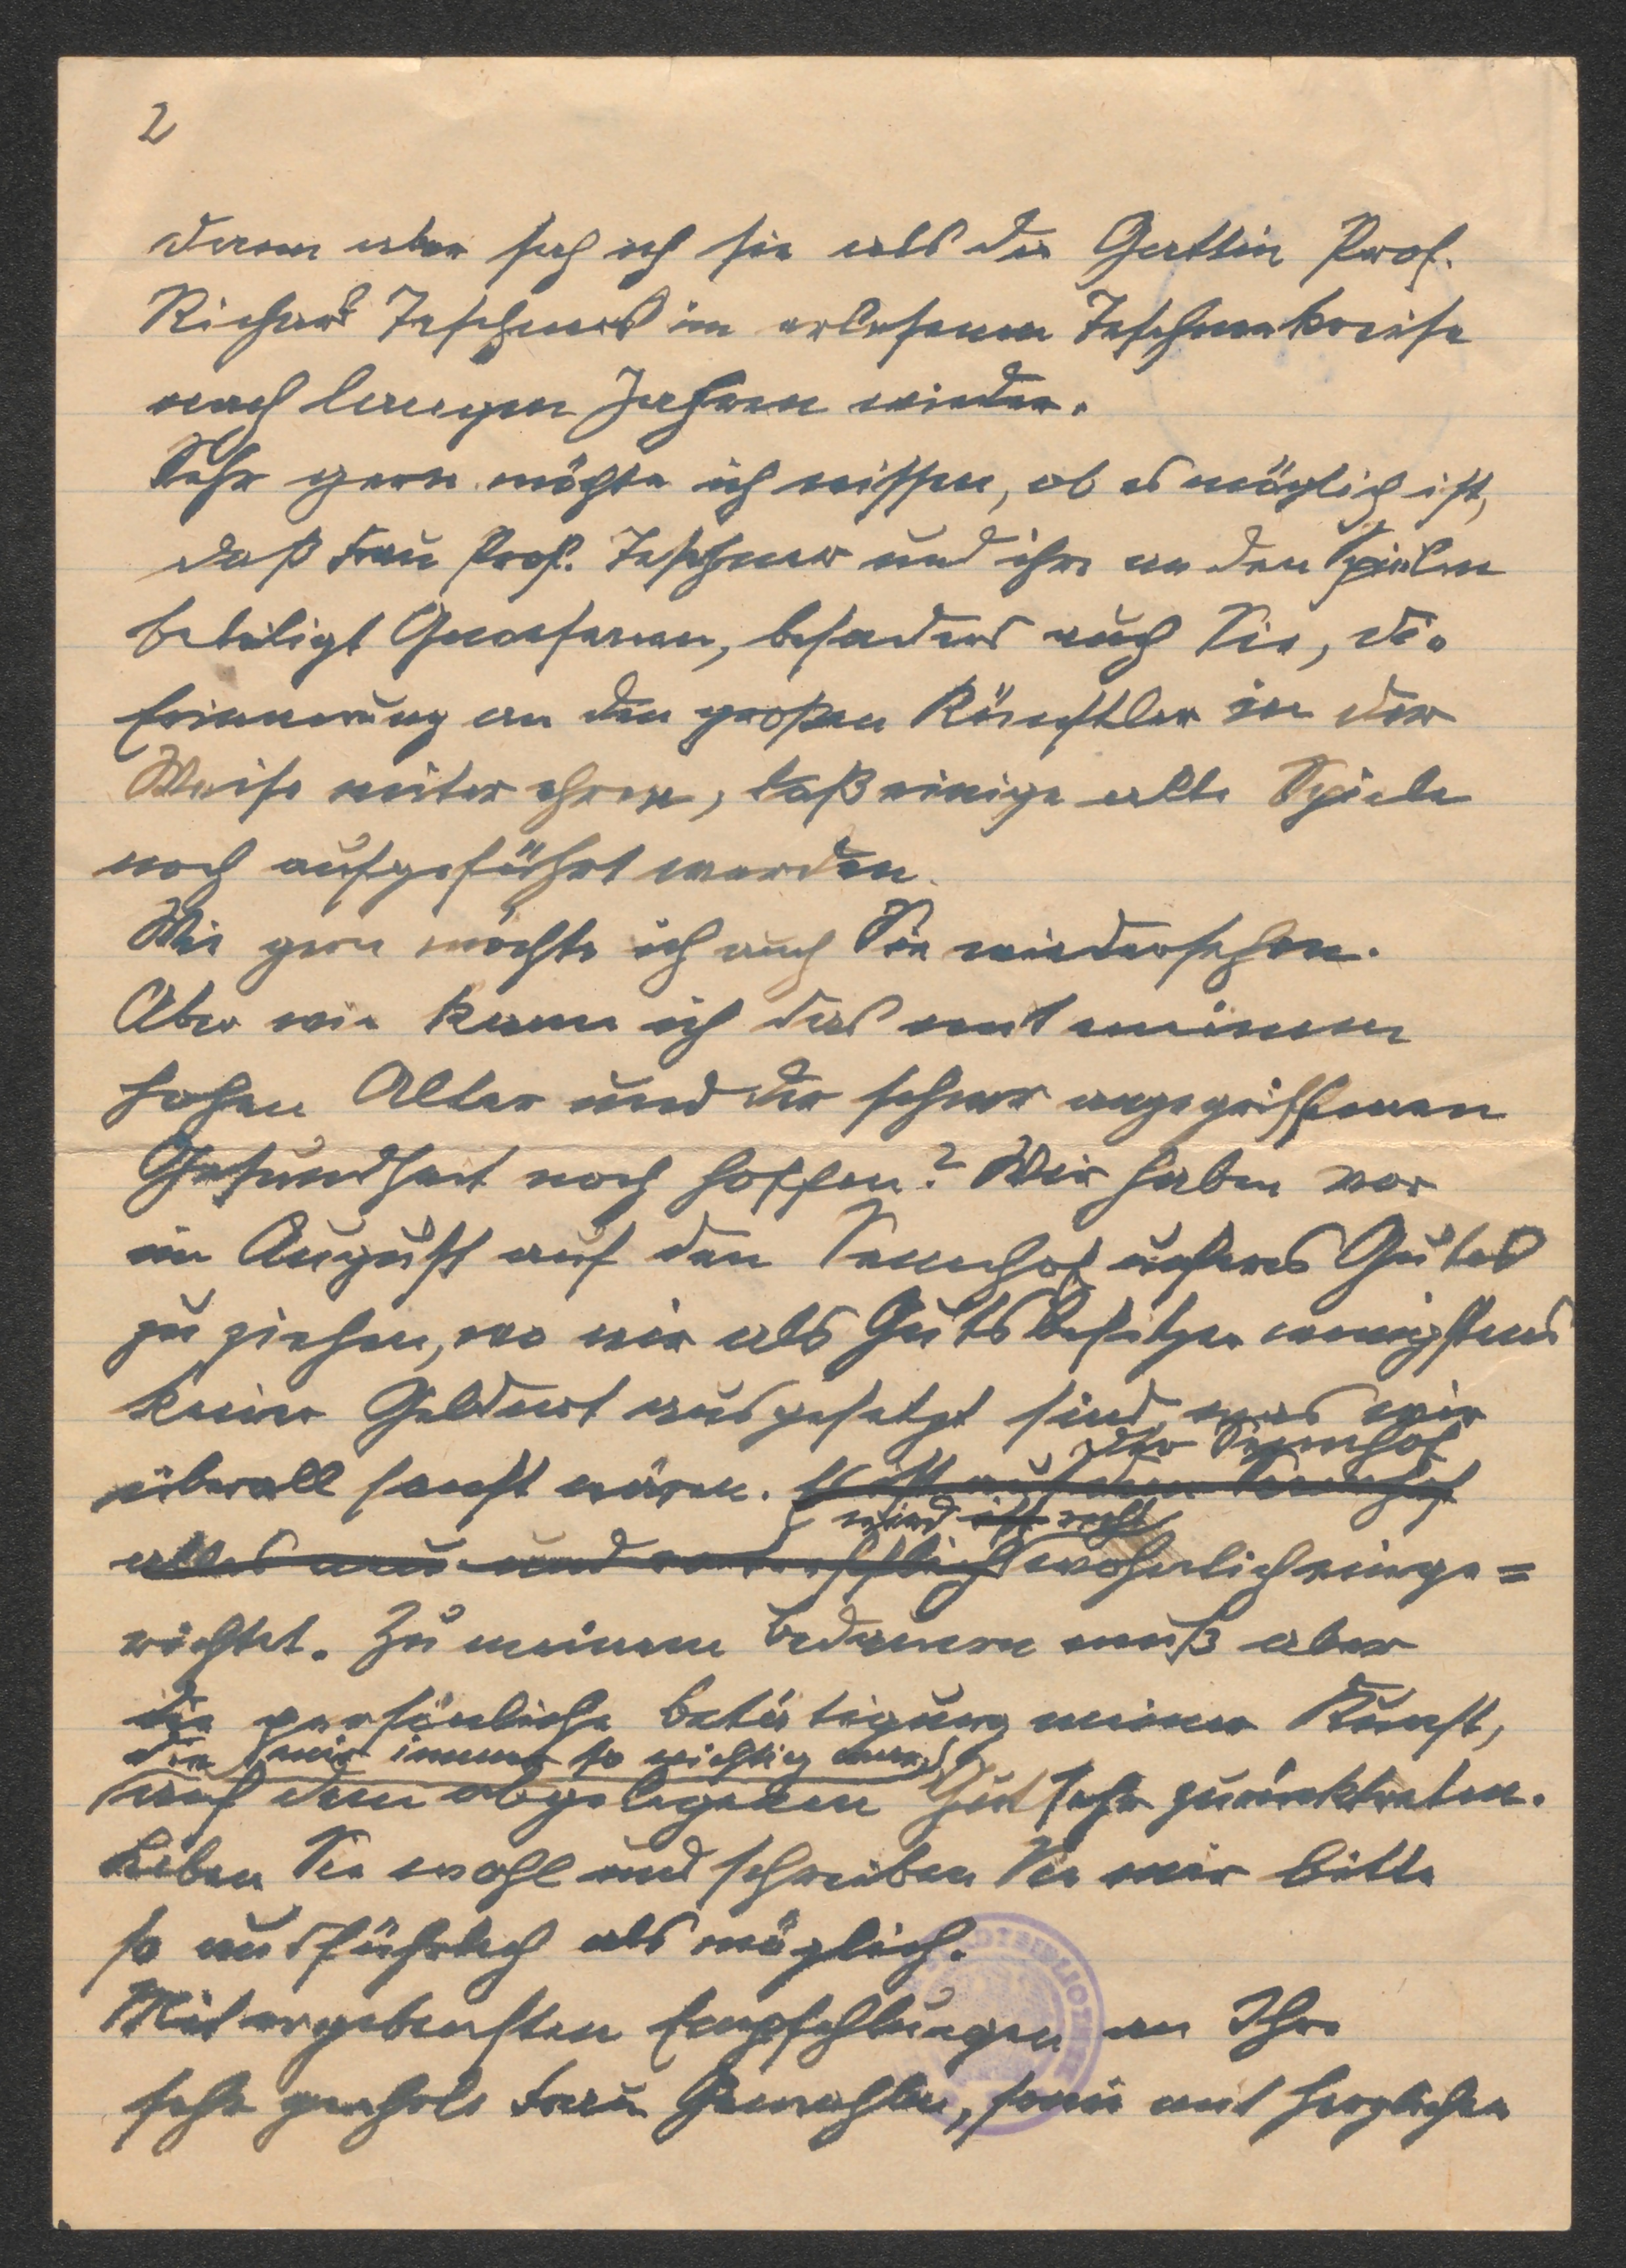 2
dann aber sah ich sie als die Gattin Prof.
Richard Teschners im erlesenen Teschnerkreise
nach langen Jahren wieder.
Sehr gern möchte ich wissen, ob es möglich ist,
daß Frau Prof. Teschner und ihre an den Spielen
beteiligt Gewesenen, besonders auch Sie, die
Erinnerung an den großen Künstler in der
Weise weiter ehren, daß einige alte Spiele
noch aufgeführt werden.
Wie gern möchte ich auch Sie wiedersehen.
Aber wie kann ich das mit meinem
hohen Alter und der schwer angegriffenen
Gesundheit noch hoffen? Wir haben vor
im August auf den Sennhof unseres Gutes
zu ziehen, wo wir als Gutsbesitzer wenigstens
keiner Geldnot ausgesetzt sind, was wir
der Sennhof
überall sonst wären. Es ist auf dem Sennhof
wird ist recht
alles neu und vortrefflich wohnlich einge=
richtet. Zu meinem Bedauern muß aber
die persönliche Betätigung meiner Kunst,
die mir immer so wichtig war,
auf dem abgelegenen Gut sehr zurücktreten.
Leben Sie wohl und schreiben Sie mir bitte
so ausführlich als möglich.
Mit ergebensten Empfehlungen an Ihre
sehr geehrte Frau Gemahlin, sowie mit herzlichen